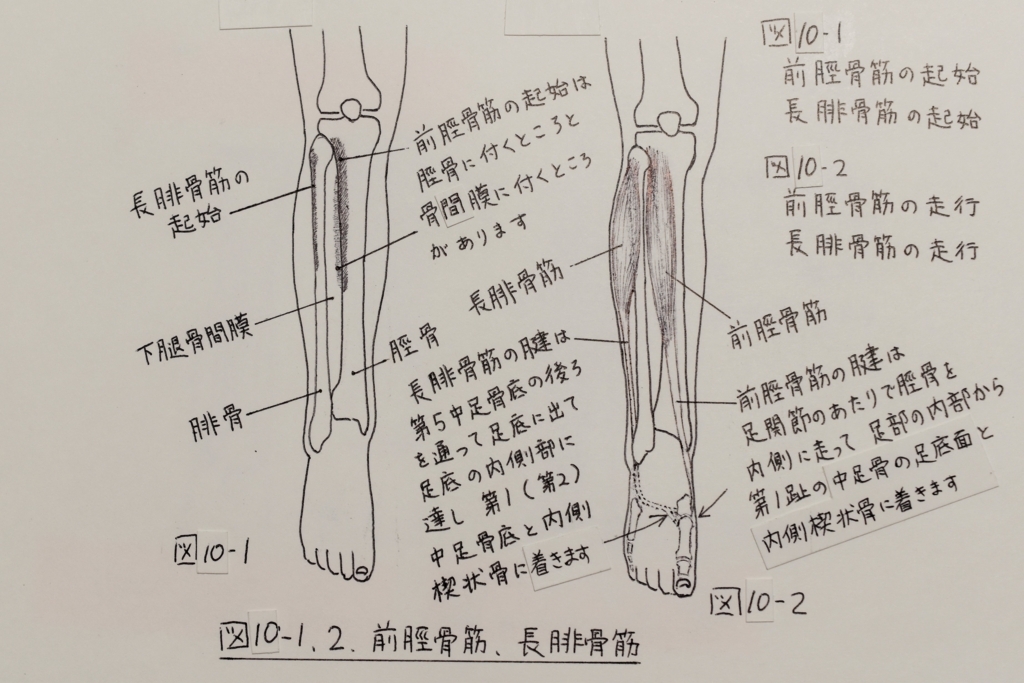 図10-1
前脛骨筋の起始
長腓骨筋の起始
図10-2
前脛骨筋の走行
長腓骨筋の走行
前脛骨筋の起始は
脛骨に付くところと
骨間膜に付くところ
があります
長腓骨筋の
起始
下腿骨間膜
脛骨
腓骨
図10-1
長腓骨筋
前脛骨筋
長腓骨筋の腱は
第5中足骨底の後ろ
を通って足底に出て
足底の内側部に
達し 第1(第2)
中足骨底と内側
楔状骨に着きます
前脛骨筋の腱は
足関節のあたりで脛骨を
内側に走って 足部の内部から
第1趾の中足骨の足底面と
内側楔状骨に着きます
図10-2
図10-1、2. 前脛骨筋、長腓骨筋